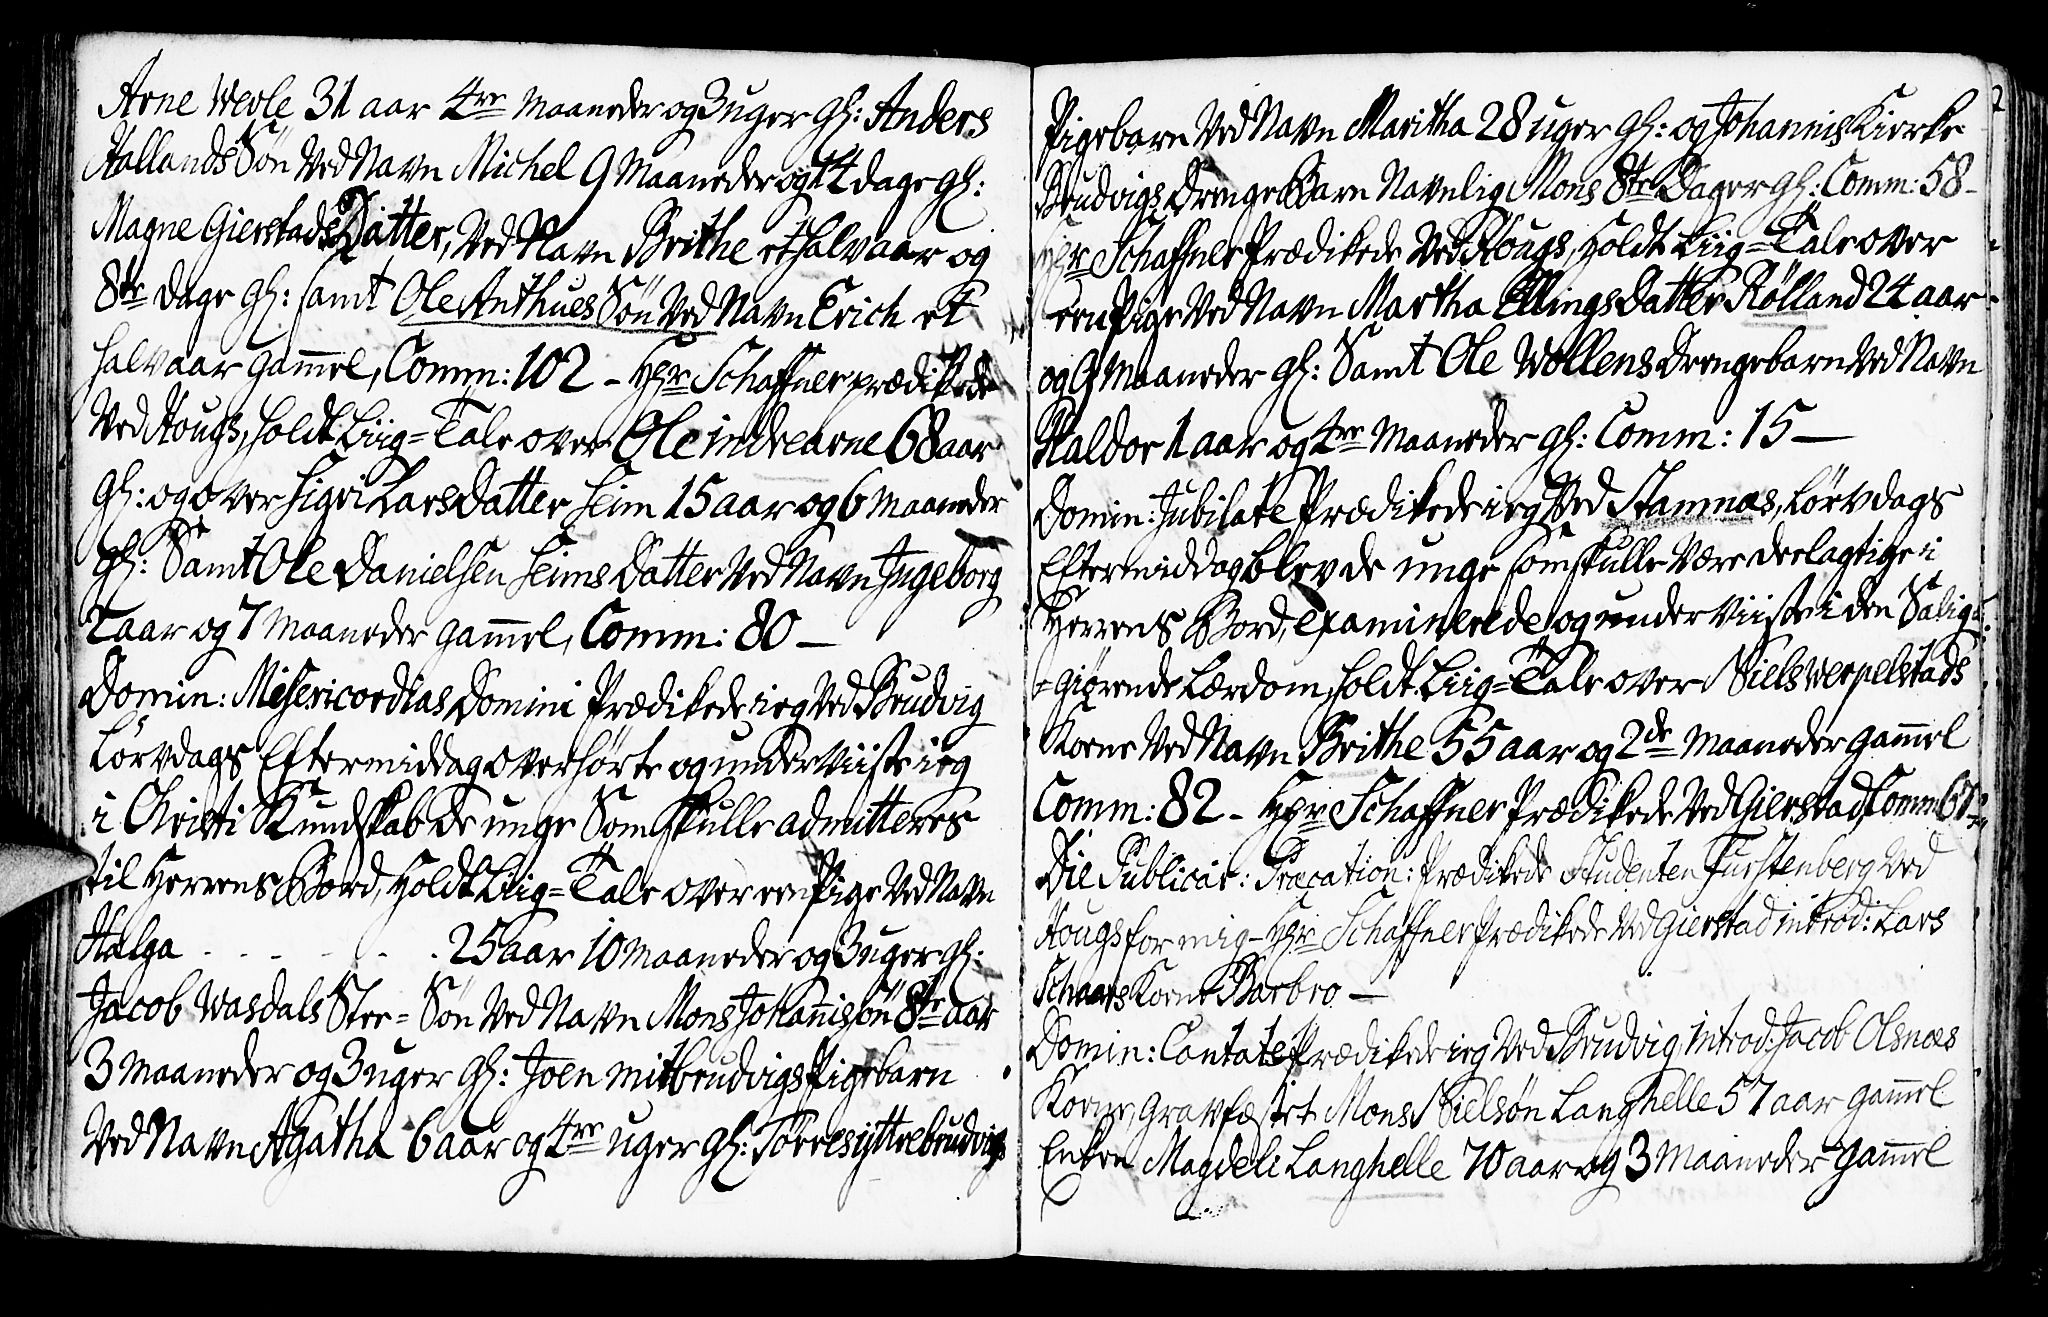 Arne Wevle 31 aar 4re Maaneder og 3 uger gl: Anders
Hallands Søn Ved Navn Michel 9 Maaneder og 14 dage gl:
Magne Gierstads Datter, Ved Navn Brithe et halv aar og
8te dage gl: samt Ole Anthues Søn Ved Navn Erich et
halv aar gam̄el, Comm: 102 - Hr Schaffner prædikede
Ved Hougs, holdt Liig=Tale over Ole indrearne 68 aar
gl: og over Sigri Lars Datter Seim 15 aar og 6 Maaneder
gl: Samt Ole Danielsen Seims Datter Ved Navn Ingeborg
2 aar og 7 Maaneder gam̄el, Comm: 80 —
Domin: Misericordias Domini Prædikede ieg Ved Brudvig
Lørvdags Eftermiddag overhørte og underviiste ieg
i Christi Kundskab de unge Som Skulle admitteres
til Herrens Bord, Holdt Liig=Tale over een Pige Ved Navn
Halga - - - - - - . 25 aar 10 Maaneder og 3 uger gl:
Jacob Wasdals Stee=Søn Ved Navn Mons Johannissøn 8te aar
3 Maaneder og 3 uger gl: Joen mitbrudvigs Pigebarn
Ved Navn Agatha 6 aar og 4re uger gl: Torres yttrebrudvigs
Pigebarn Ved Navn Maritha 28 uger gl: og Johannis Kierke
Brudvigs Drenge Barn Navnlig Mons 8te Dager gl: Comm: 58 -
Hr Schaffner Prædikede Ved Hougs, Holdt Liig=Tale over
een Pige Ved Navn Martha Ellings Datter Rølland 24 aar
og 9 Maaneder gl: Samt Ole Wollens Drengebarn Ved Navn
Haldor 1 aar og 4re Maaneder gl: Comm: 15 —
Domin: Jubilate Prædikede ieg Ved Stamnæs, Lørvdags
Eftermiddag blev de unge som skulle være deelagtige i
Herrens Bord, examinerede og underviiste i den Salig=
=giørende Lærdom, holdt Liig=Tale over Niels Werpelstads
Kone Ved Navn Brithe 55 aar og 2de Maaneder gam̄el
Comm: 82 - Hr Schaffner Prædikede Ved Gierstad, Comm 67
Die Publicar: Precation: Prædikede Studenten Furstenberg Ved
Hougs for mig - Hr Schaffner Prædikede Ved Gierstad introd: Lars
Schaars Kone Barbro —
Domin: Cantate Prædikede ieg Ved Brudvig, introd: Jacob Olsnæs
Kone, gravfæstet Mons Nielsøn Langhelle 57 aar gam̄el
Enken Magdeli Langhelle 70 aar og 3 Maaneder gam̄el